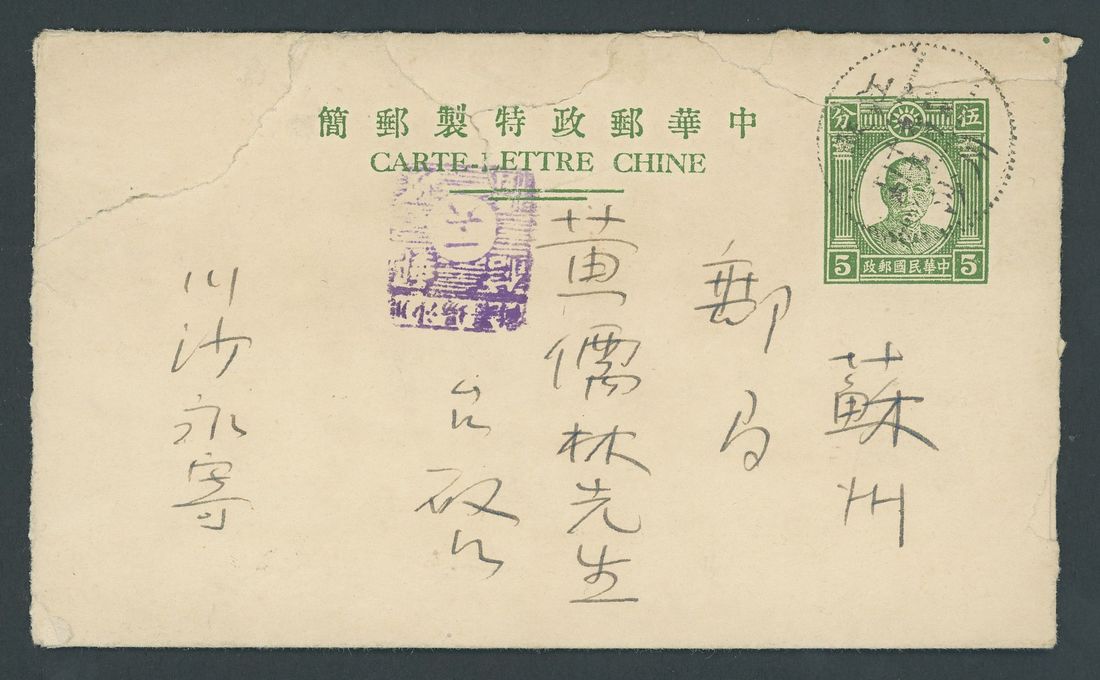 中華郵政特製郵簡
CARTE-LETTRE CHINE
伍分
5 中華民國郵政 5
蘇州
郵局
儒林先生
台啟
川沙永寄
六一